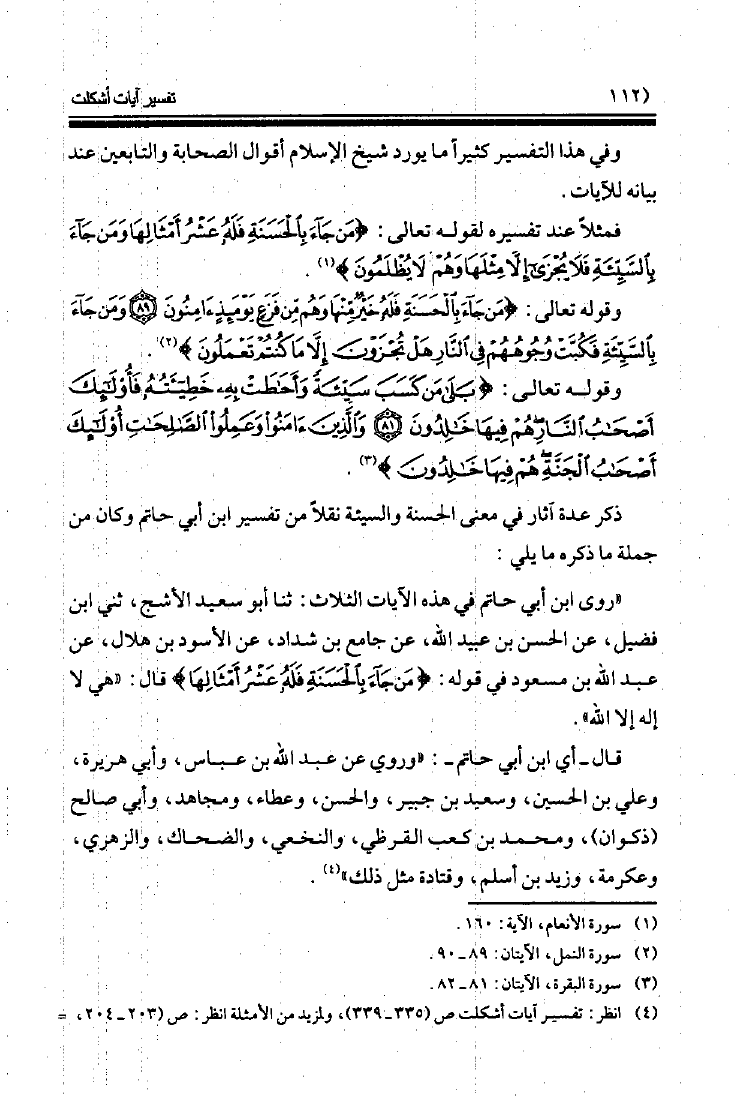 (١١٢ تفسير آيات أشكلت
وفي هذا التفسير كثيراً ما يورد شيخ الإسلام أقوال الصحابة والتابعين عند
بيانه للآيات .
فمثلاً عند تفسيره لقوله تعالى : ﴿مَن جَآءَ بِالْحَسَنَةِ فَلَهُۥ عَشْرُ أَمْثَالِهَا وَمَن جَآءَ
بِالسَّيِّئَةِ فَلَا يُجْزَىٰٓ إِلَّا مِثْلَهَا وَهُمْ لَا يُظْلَمُونَ ﴾(١) .
وقوله تعالى : ﴿مَن جَآءَ بِالْحَسَنَةِ فَلَهُۥ خَيْرٌ مِّنْهَا وَهُم مِّن فَزَعٍ يَوْمَئِذٍ ءَامِنُونَ ٨٩ وَمَن جَآءَ
بِالسَّيِّئَةِ فَكُبَّتْ وُجُوهُهُمْ فِي النَّارِ هَلْ تُجْزَوْنَ إِلَّا مَا كُنتُمْ تَعْمَلُونَ ﴾(٢) .
وقوله تعالى : ﴿ بَلَىٰ مَن كَسَبَ سَيِّئَةً وَأَحَٰطَتْ بِهِۦ خَطِيٓـَٔتُهُۥ فَأُو۟لَٰٓئِكَ
أَصْحَٰبُ النَّارِ هُمْ فِيهَا خَٰلِدُونَ ٨١ وَالَّذِينَ ءَامَنُوا وَعَمِلُوا الصَّٰلِحَٰتِ أُو۟لَٰٓئِكَ
أَصْحَٰبُ الْجَنَّةِ هُمْ فِيهَا خَٰلِدُونَ ﴾(٣) .
ذكر عدة آثار في معنى الحسنة والسيئة نقلاً من تفسير ابن أبي حاتم وكان من
جملة ما ذكره ما يلي :
«روى ابن أبي حاتم في هذه الآيات الثلاث : ثنا أبو سعيد الأشج، ثني ابن
فضيل، عن الحسن بن عبيد الله، عن جامع بن شداد، عن الأسود بن هلال، عن
عبد الله بن مسعود في قوله : ﴿ مَن جَآءَ بِالْحَسَنَةِ فَلَهُۥ عَشْرُ أَمْثَالِهَا ﴾ قال : «هي لا
إله إلا الله» .
قال ـ أي ابن أبي حاتم ـ : «وروي عن عبد الله بن عباس، وأبي هريرة،
وعلي بن الحسين، وسعيد بن جبير، والحسن، وعطاء، ومجاهد، وأبي صالح
(ذكوان)، ومحمد بن كعب القرظي، والنخعي، والضحاك، والزهري،
وعكرمة، وزيد بن أسلم، وقتادة مثل ذلك»(٤) .
(١) سورة الأنعام، الآية: ١٦٠ .
(٢) سورة النمل، الآيتان: ٨٩ ـ ٩٠ .
(٣) سورة البقرة، الآيتان: ٨١ ـ ٨٢ .
(٤) انظر : تفسير آيات أشكلت ص (٣٣٥ ـ ٣٣٩)، ولمزيد من الأمثلة انظر : ص (٢٠٣ ـ ٢٠٤، =